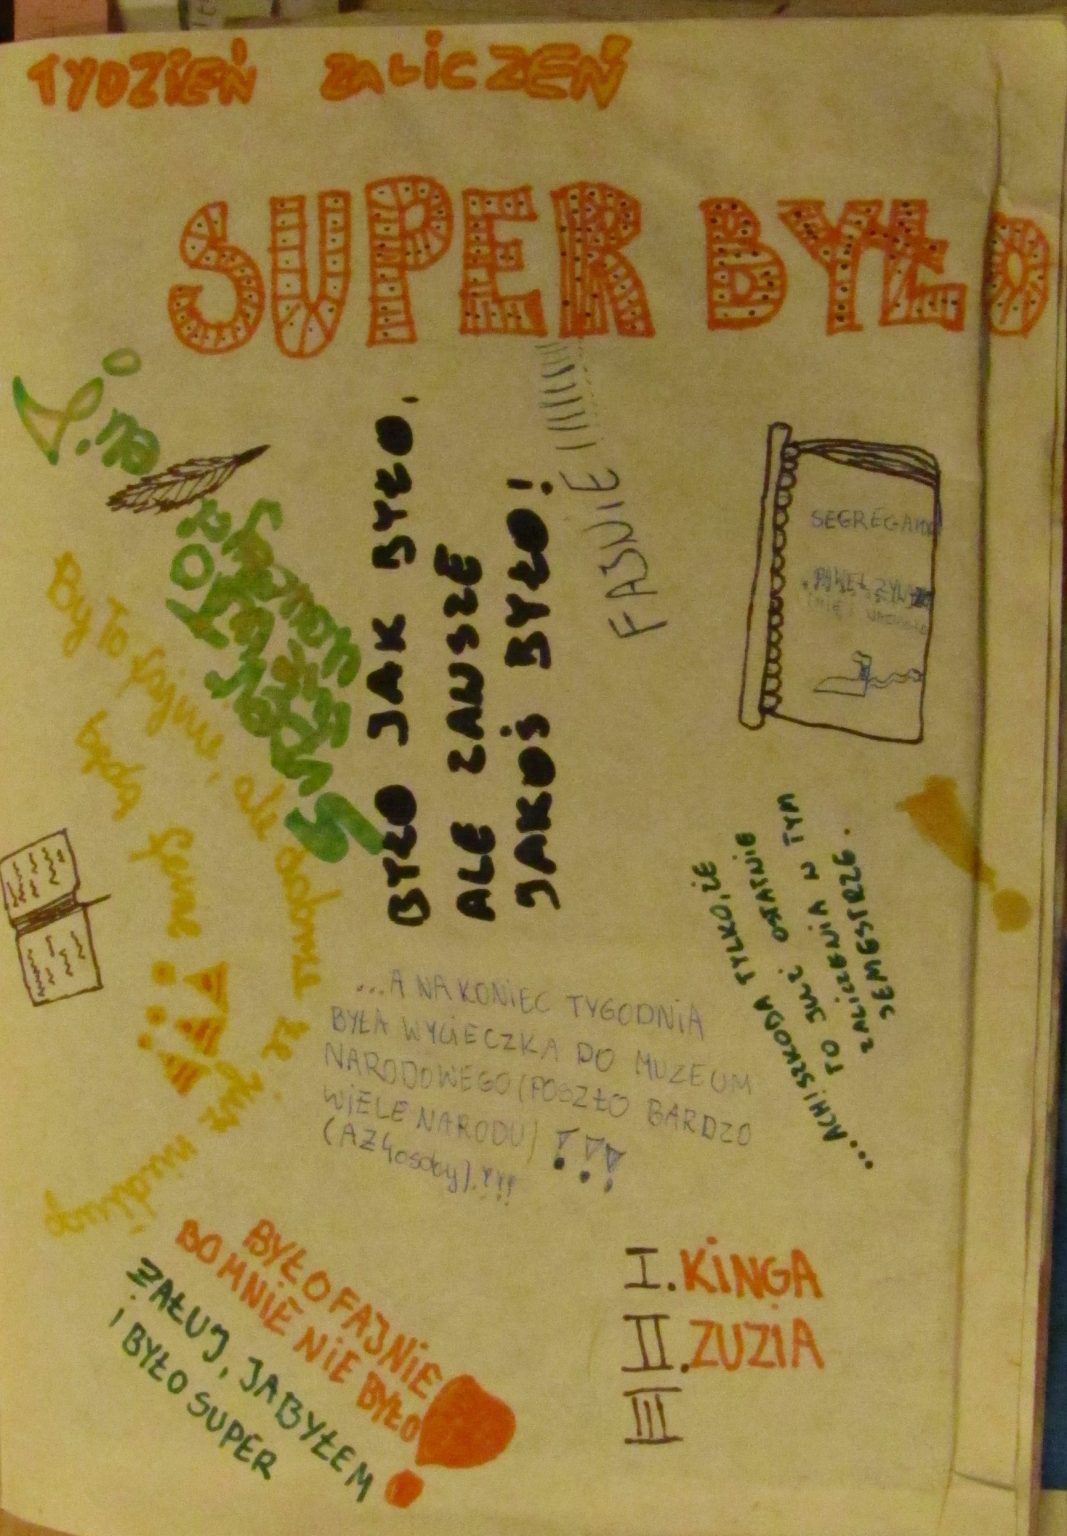 TYDZIEŃ ZALICZEŃ
SUPER BYŁO
BYŁO JAK BYŁO,
ALE ZAWSZE
JAKOŚ BYŁO!
FAJNIE!!!!!!!!!
SEGREGATOR
By To fajne, ale dobrze że już minęło
będą ferie !!!
...ACH! SZKODA TYLKO, ŻE
TO JUŻ OSTATNIE
ZALICZENIA W TYM
SEMESTRZE.
...A NA KONIEC TYGODNIA
BYŁA WYCIECZKA DO MUZEUM
NARODOWEGO (POSZŁO BARDZO
WIELE NARODU) !!!
(AŻ 4 osoby).!!!
BYŁO FAJNIE
BO MNIE NIE BYŁO!
ŻAŁUJ, JA BYŁEM
I BYŁO SUPER
I. KINGA
II. ZUZIA
III